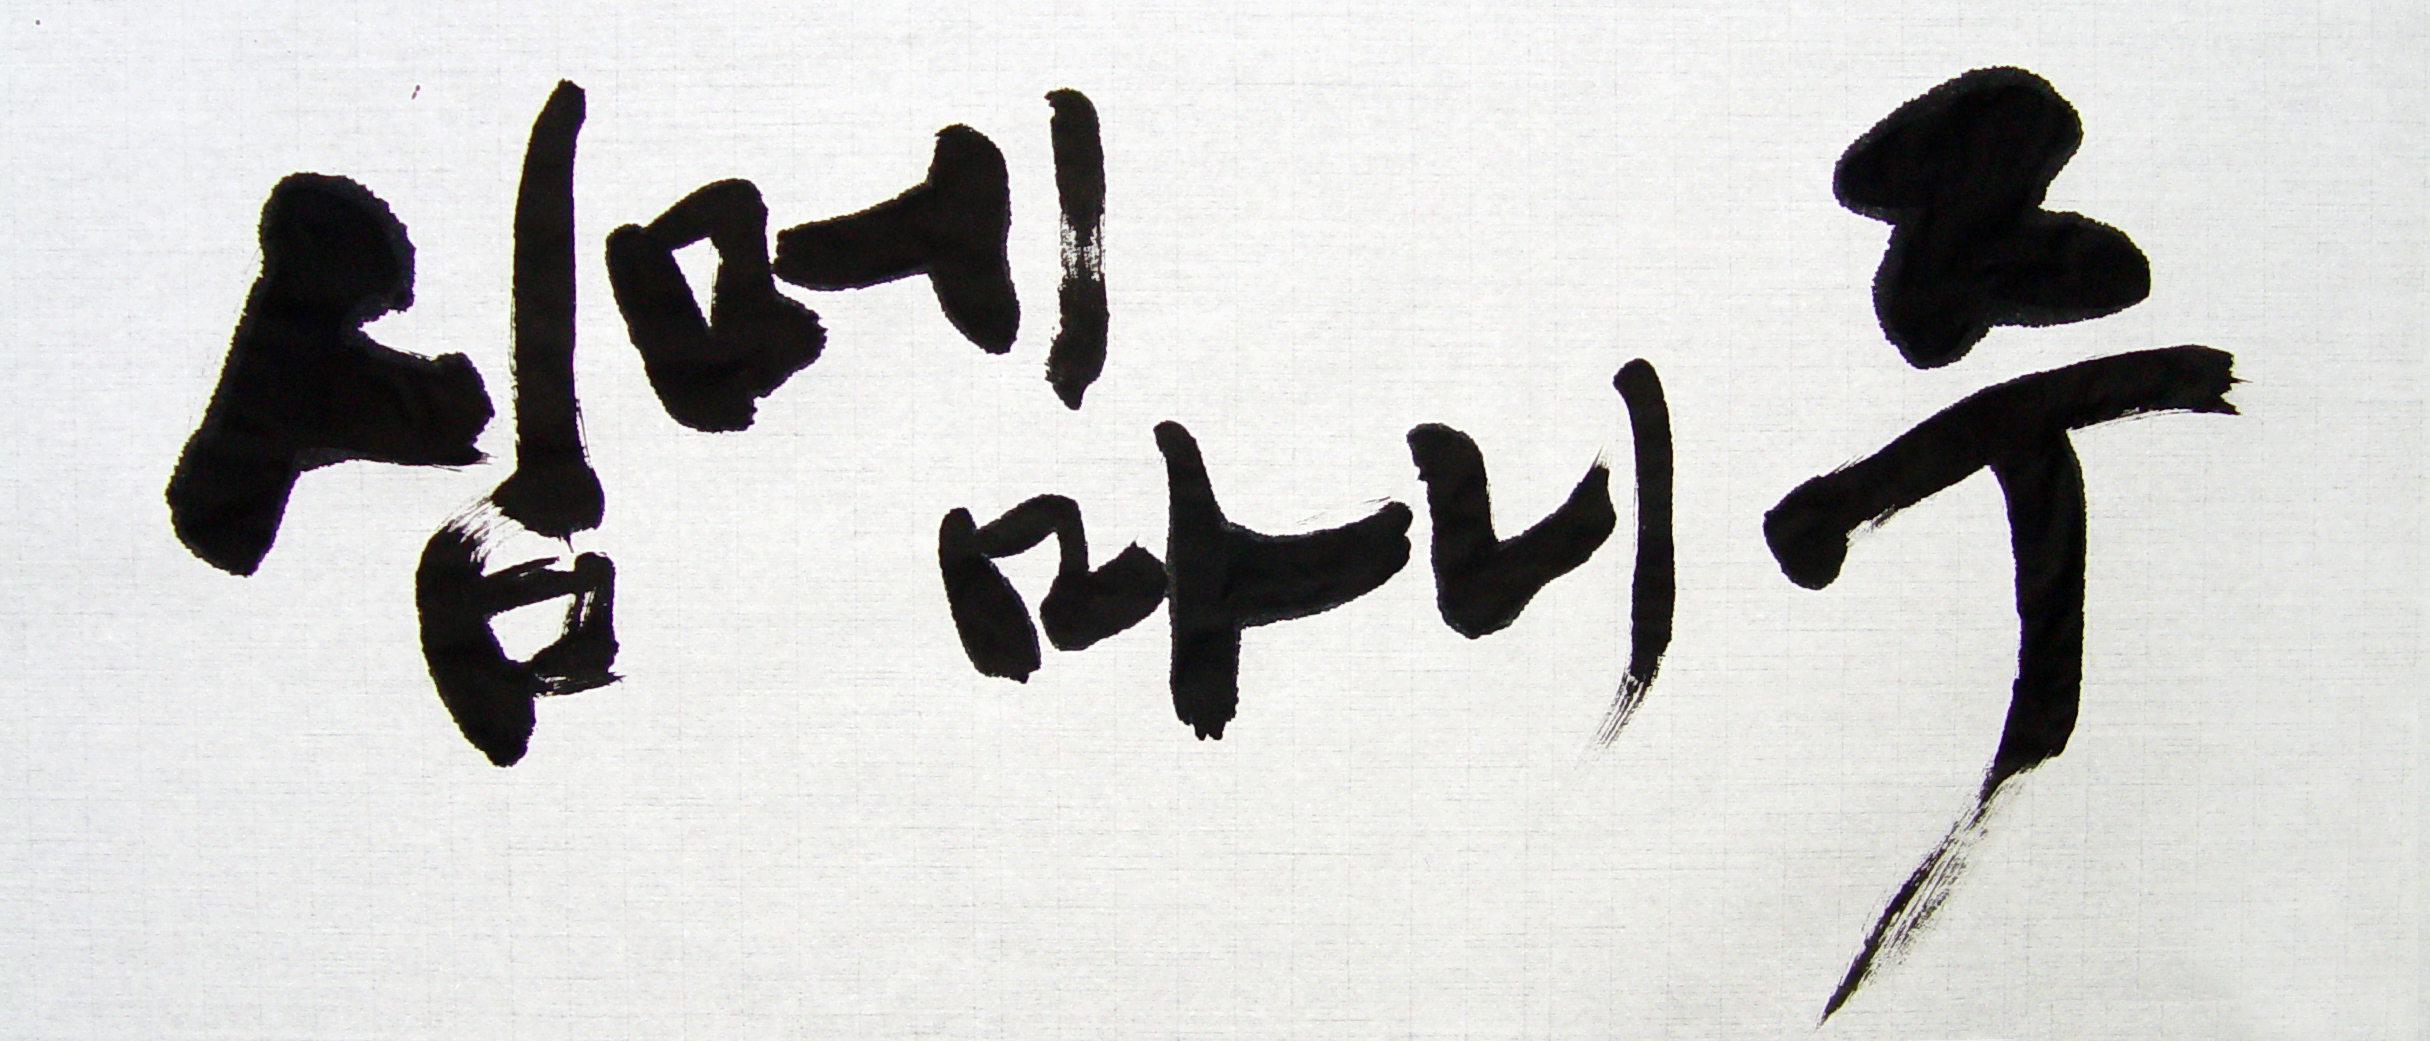 심메마니주